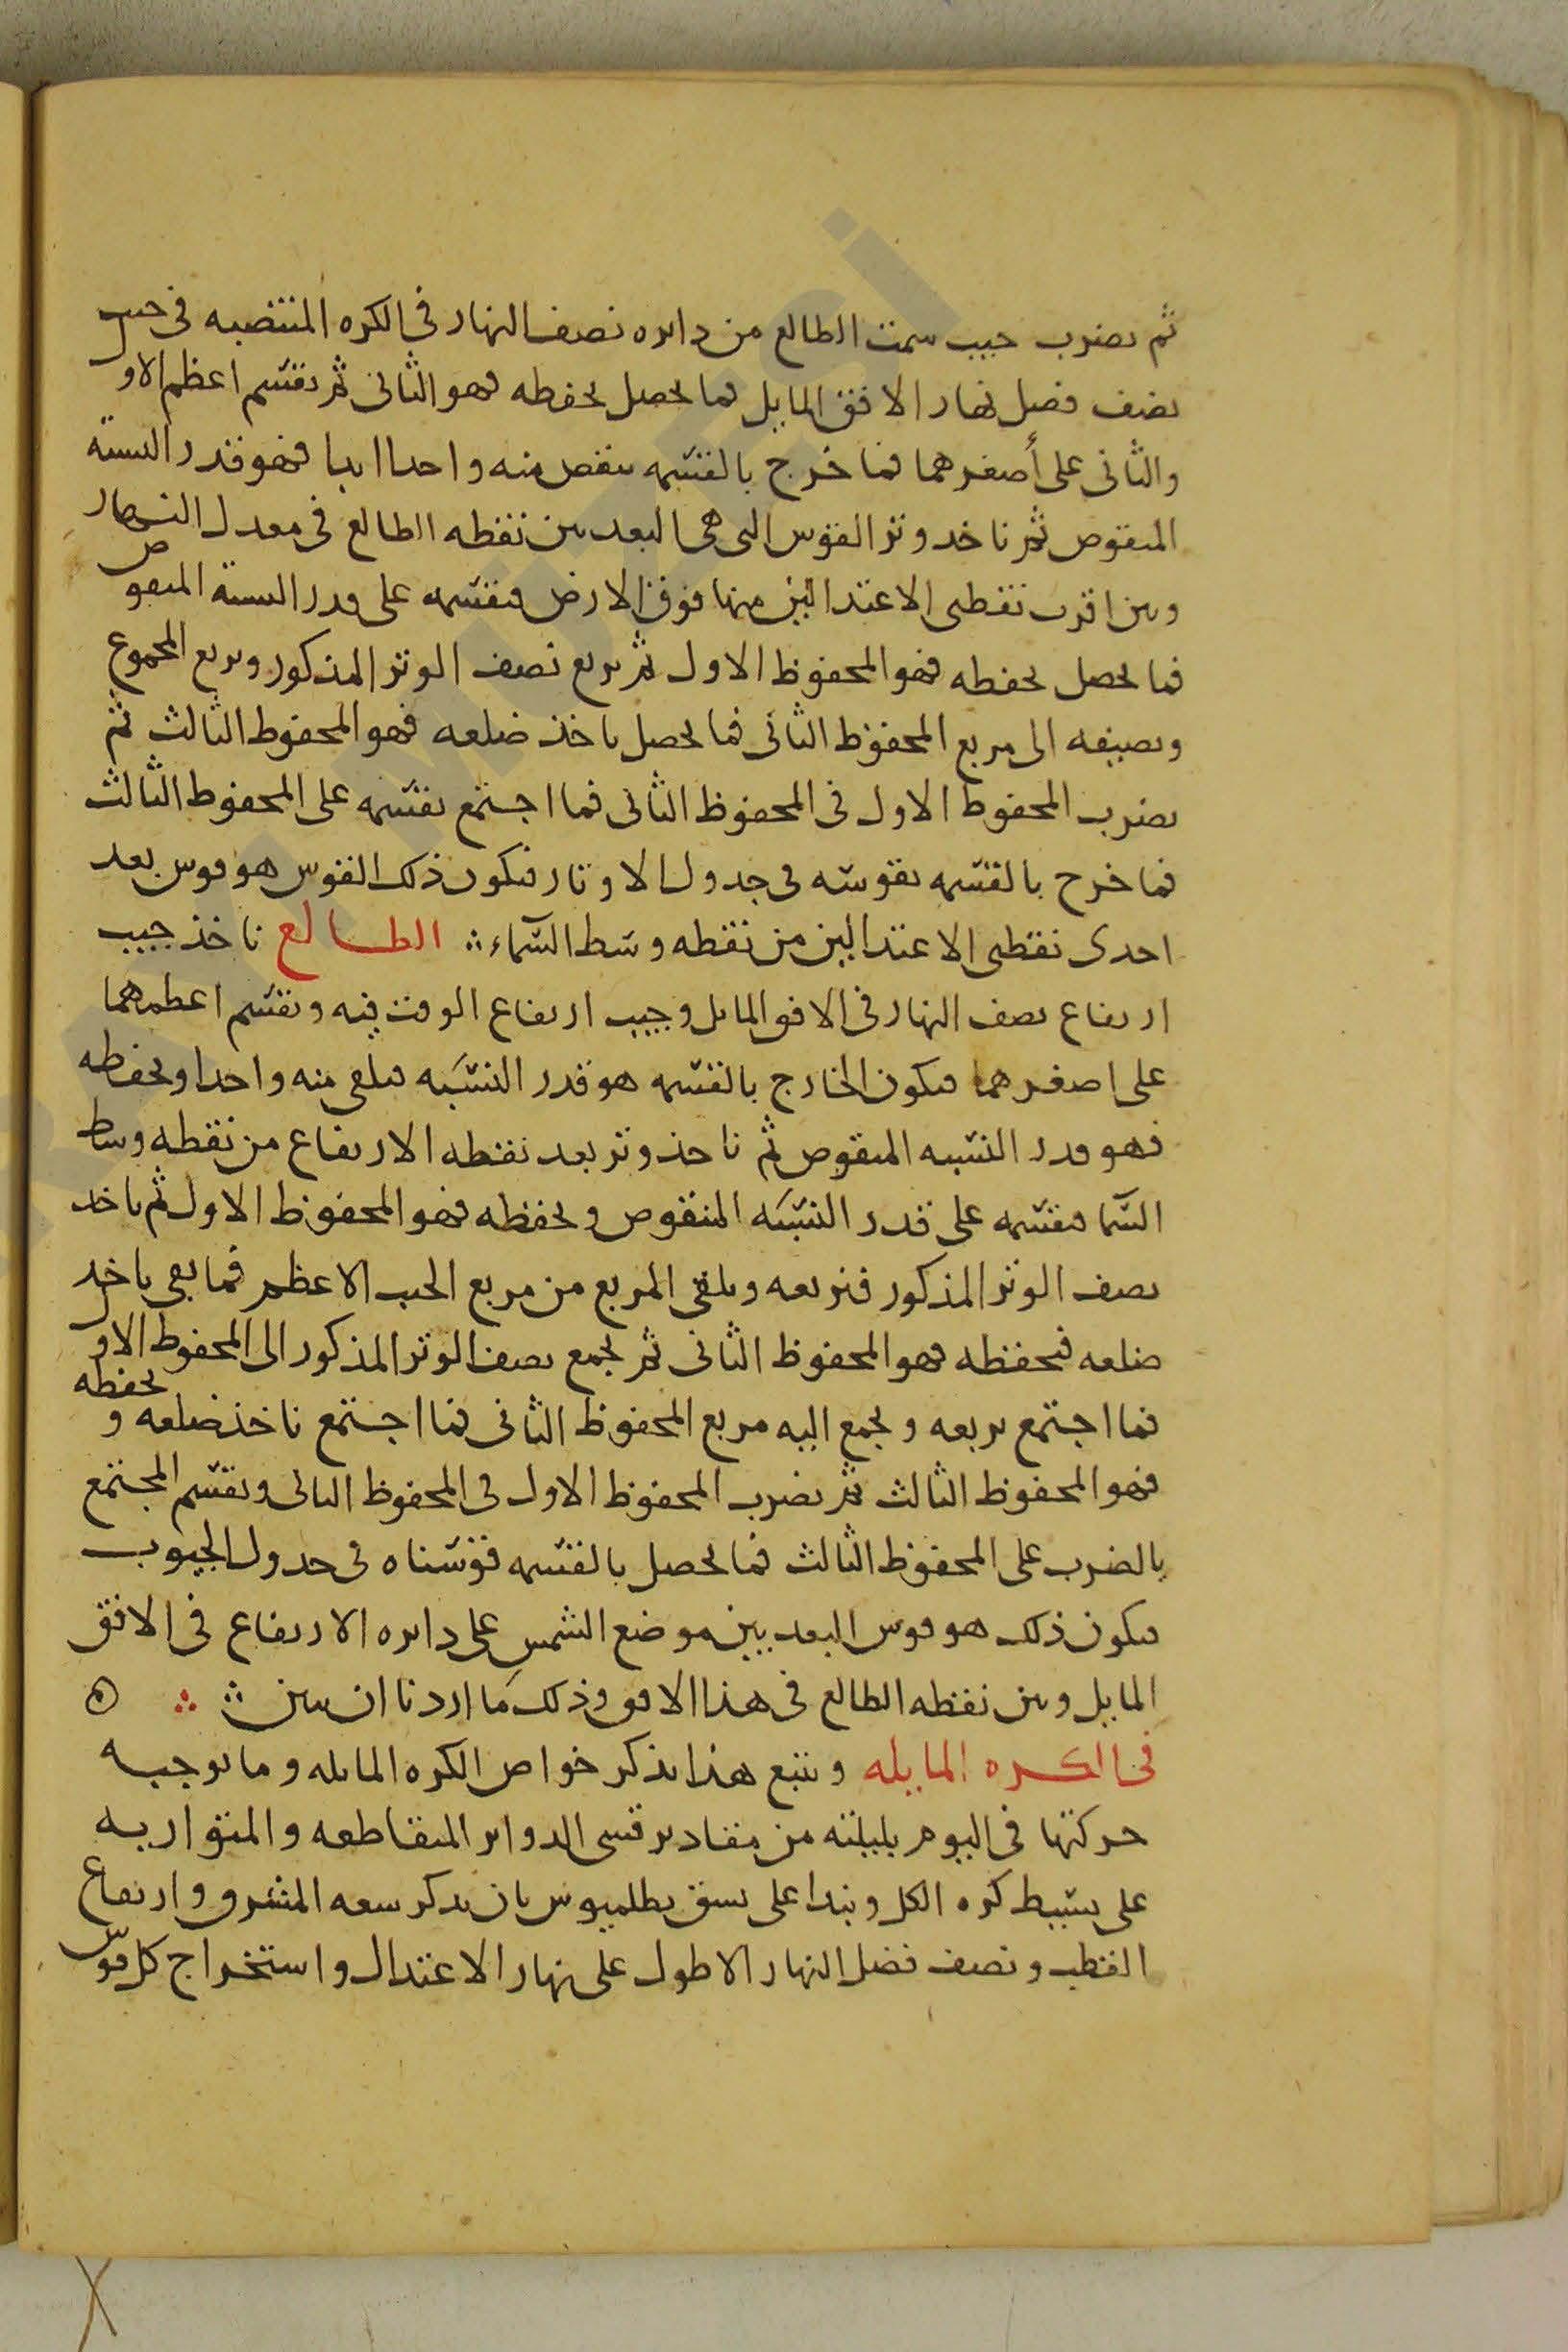 ثم نضرب جيب سمت الطالع من دايره نصف النهار في الكره المنتصبه في جيب
نصف فضل نهار الافق المايل فما يحصل نحفظه فهو الثاني ثم نقسم اعظم الاول
والثاني على أصغرهما فما خرج بالقسمه ننقص منه واحدا ابدا فهو قدر النسبة
المنقوص ثم ناخد وتر القوس التي هي البعد بين نقطه الطالع في معدل النهار
وبين اقرب نقطتي الاعتدالين منها فوق الارض فنقسمه على قدر النسبة المنقوص
فما يحصل نحفظه فهو المحفوظ الاول ثم نربع نصف الوتر المذكور ونربع المجموع
ونضيفه الى مربع المحفوظ الثاني فما يحصل ناخذ ضلعه فهو المحفوظ الثالث ثم
نضرب المحفوظ الاول في المحفوظ الثاني فما اجتمع نقسمه على المحفوظ الثالث
فما خرج بالقسمه نقوسه في جدول الاوتار فيكون ذلك القوس هو قوس بعد
احدى نقطتي الاعتدالين من نقطه وسط السماء ∴ الطالع ناخذ جيب
ارتفاع نصف النهار في الافق المايل وجيب ارتفاع الوقت فيه ونقسم اعظمهما
على اصغرهما فيكون الخارج بالقسمه هو قدر النسبه فنلقي منه واحدا ونحفظه
فهو قدر النسبه المنقوص ثم ناخذ وتر بعد نقطه الارتفاع من نقطه وسط
السما فنقسمه على قدر النسبه المنقوص ونحفظه فهو المحفوظ الاول ثم ناخد
نصف الوتر المذكور فنربعه ونلقي المربع من مربع الجيب الاعظم فما بقي ناخد
ضلعه فنحفظه فهو المحفوظ الثاني ثم نجمع نصف الوتر المذكور الى المحفوظ الاول
فما اجتمع نربعه ونجمع اليه مربع المحفوظ الثاني فما اجتمع ناخذ ضلعه ونحفظه
فهو المحفوظ الثالث ثم نضرب المحفوظ الاول في المحفوظ الثاني ونقسم المجتمع
بالضرب على المحفوظ الثالث فما يحصل بالقسمه قوسناه في جدول الجيوب
فيكون ذلك هو قوس البعد بين موضع الشمس على دايره الارتفاع في الافق
المايل وبين نقطه الطالع في هذا الافق وذلك ما اردنا ان نبين ∴ ∴
في الكره المايله ونتبع هذا بذكر خواص الكره المايله وما توجبه
حركتها في اليوم بليلته من مقادير قسي الدواير المتقاطعه والمتوازيه
على بسيط كره الكل ونبدا على نسق بطلميوس بان نذكر سعه المشرق وارتفاع
القطب ونصف فضل النهار الاطول على نهار الاعتدال واستخراج كل قوس